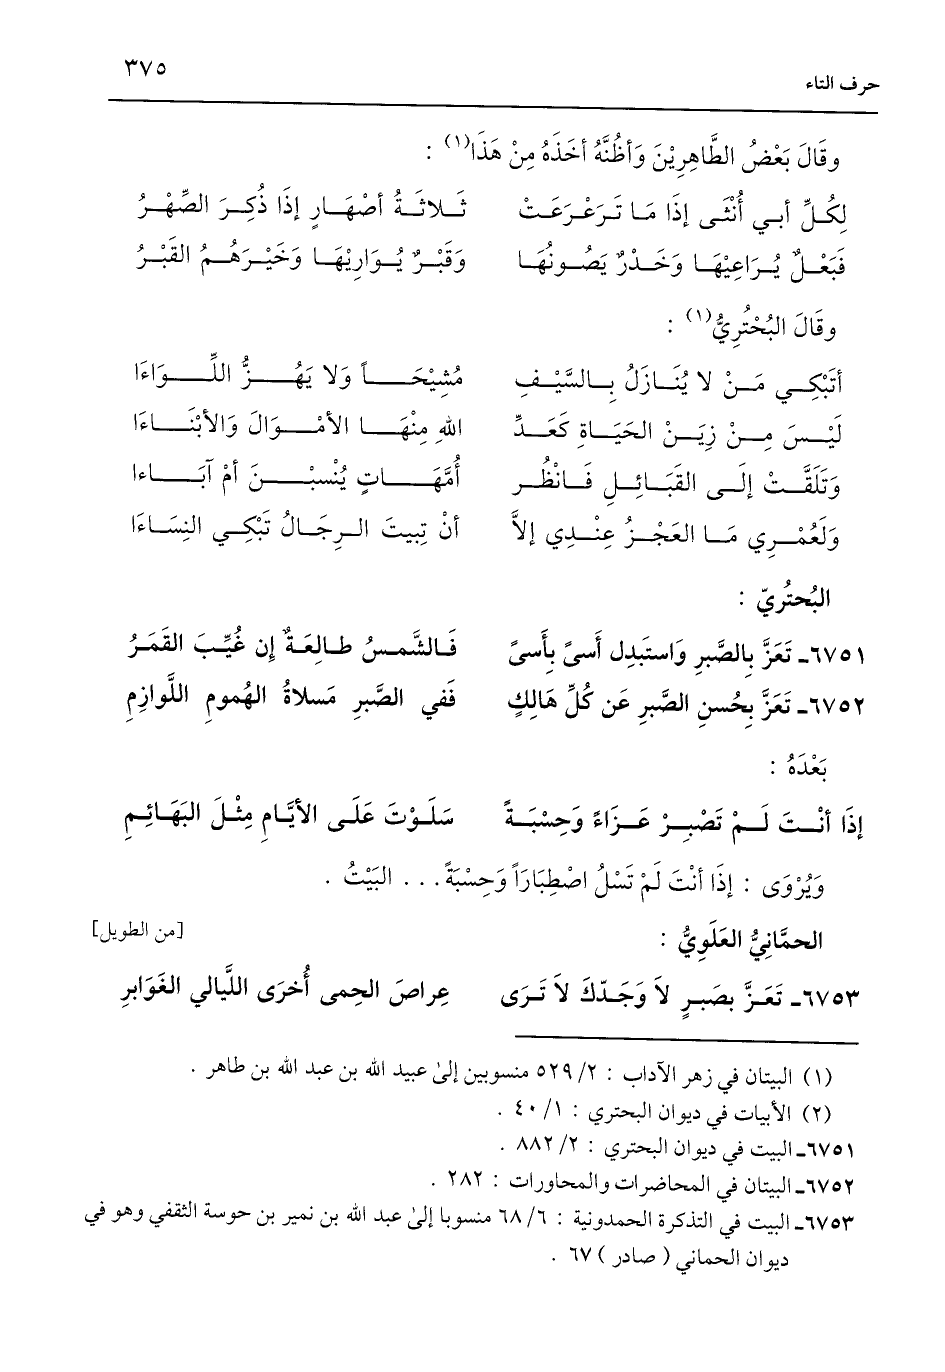 ٣٧٥
حرف التاء
وقَالَ بَعْضُ الطَّاهِرِيْنَ وَأظُنَّهُ أخَذَهُ مِنْ هَذَا(١) :
لِكُلِّ أبي أُنْثَى إذَا مَا تَرَعْرَعَتْ ثَلاثَةُ أصْهَارٍ إذَا ذُكِرَ الصِّهْرُ
فَبَعْلٌ يُرَاعِيْهَا وَخَدْرٌ يَصُونُهَا وَقَبْرٌ يُوَارِيْهَا وَخَيْرَهُمُ القَبْرُ
وقَالَ البُحْتُرِيُّ(١) :
أتَبْكِي مَنْ لا يُنَازَلُ بِالسَّيْفِ مُشِيْحَاً وَلا يَهُزُّ اللِّوَاءَا
لَيْسَ مِنْ زِيَنْ الحَيَاةِ كَعَدِّ اللهِ مِنْهَا الأمْوَالَ وَالأبْنَاءَا
وَتَلَقَّتْ إلَى القَبَائِلِ فَانْظُر أُمَّهَاتٍ يُنْسَبْنَ أمْ آبَاءا
وَلَعُمْرِي مَا العَجْزُ عِنْدِي إلاَّ أنْ تِبيتَ الرِجَالُ تَبْكِي النِسَاءَا
البُحتُريّ :
٦٧٥١ـ تَعَزَّ بِالصَّبرِ وَاستَبدِل أَسىً بِأَسىً فَالشَّمسُ طالِعَةٌ إِن غُيِّبَ القَمَرُ
٦٧٥٢ـ تَعَزَّ بِحُسنِ الصَّبرِ عَن كُلِّ هَالِكٍ فَفي الصَّبرِ مَسلاةُ الهُمومِ اللَّوازِمِ
بَعْدَهُ :
إذَا أنْتَ لَمْ تَصْبِرْ عَزَاءً وَحِسْبَةً سَلَوْتَ عَلَى الأيَّامِ مِثْلَ البَهَائِمِ
وَيُرْوَى : إذَا أنْتَ لَمْ تَسْلُ اصْطِبَارَاً وَحِسْبَةً . . . البَيْتُ .
الحمَّانِيُّ العَلَوِيُّ : [من الطويل]
٦٧٥٣ـ تَعَزَّ بصَبرٍ لاَ وَجَدّكَ لاَ تَرَى عِراصَ الحِمى أُخرَى اللَّيالي الغَوَابرِ
(١) البيتان في زهر الآداب : ٥٢٩/٢ منسوبين إلىٰ عبيد الله بن عبد الله بن طاهر .
(٢) الأبيات في ديوان البحتري : ٤٠/١ .
٦٧٥١ـ البيت في ديوان البحتري : ٨٨٢/٢ .
٦٧٥٢ـ البيتان في المحاضرات والمحاورات : ٢٨٢ .
٦٧٥٣ـ البيت في التذكرة الحمدونية : ٦٨/٦ منسوبا إلىٰ عبد الله بن نمير بن حوسة الثقفي وهو في
ديوان الحماني ( صادر ) ٦٧ .